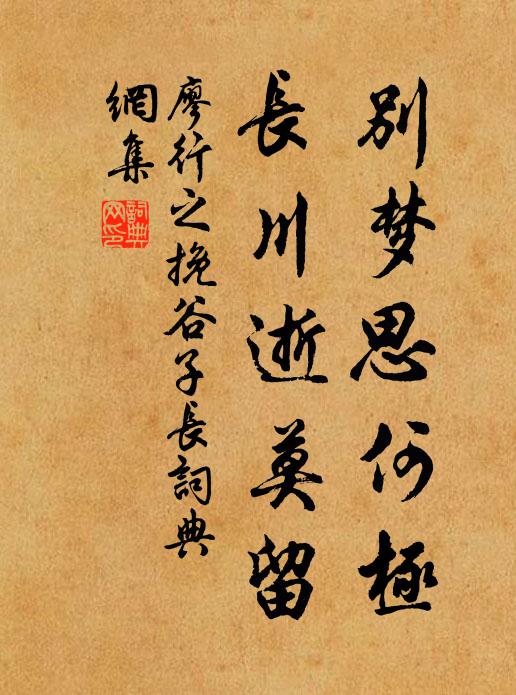 别梦思何極
長川逝莫留
廖行之挽谷子長詞典
網集
詞典网印